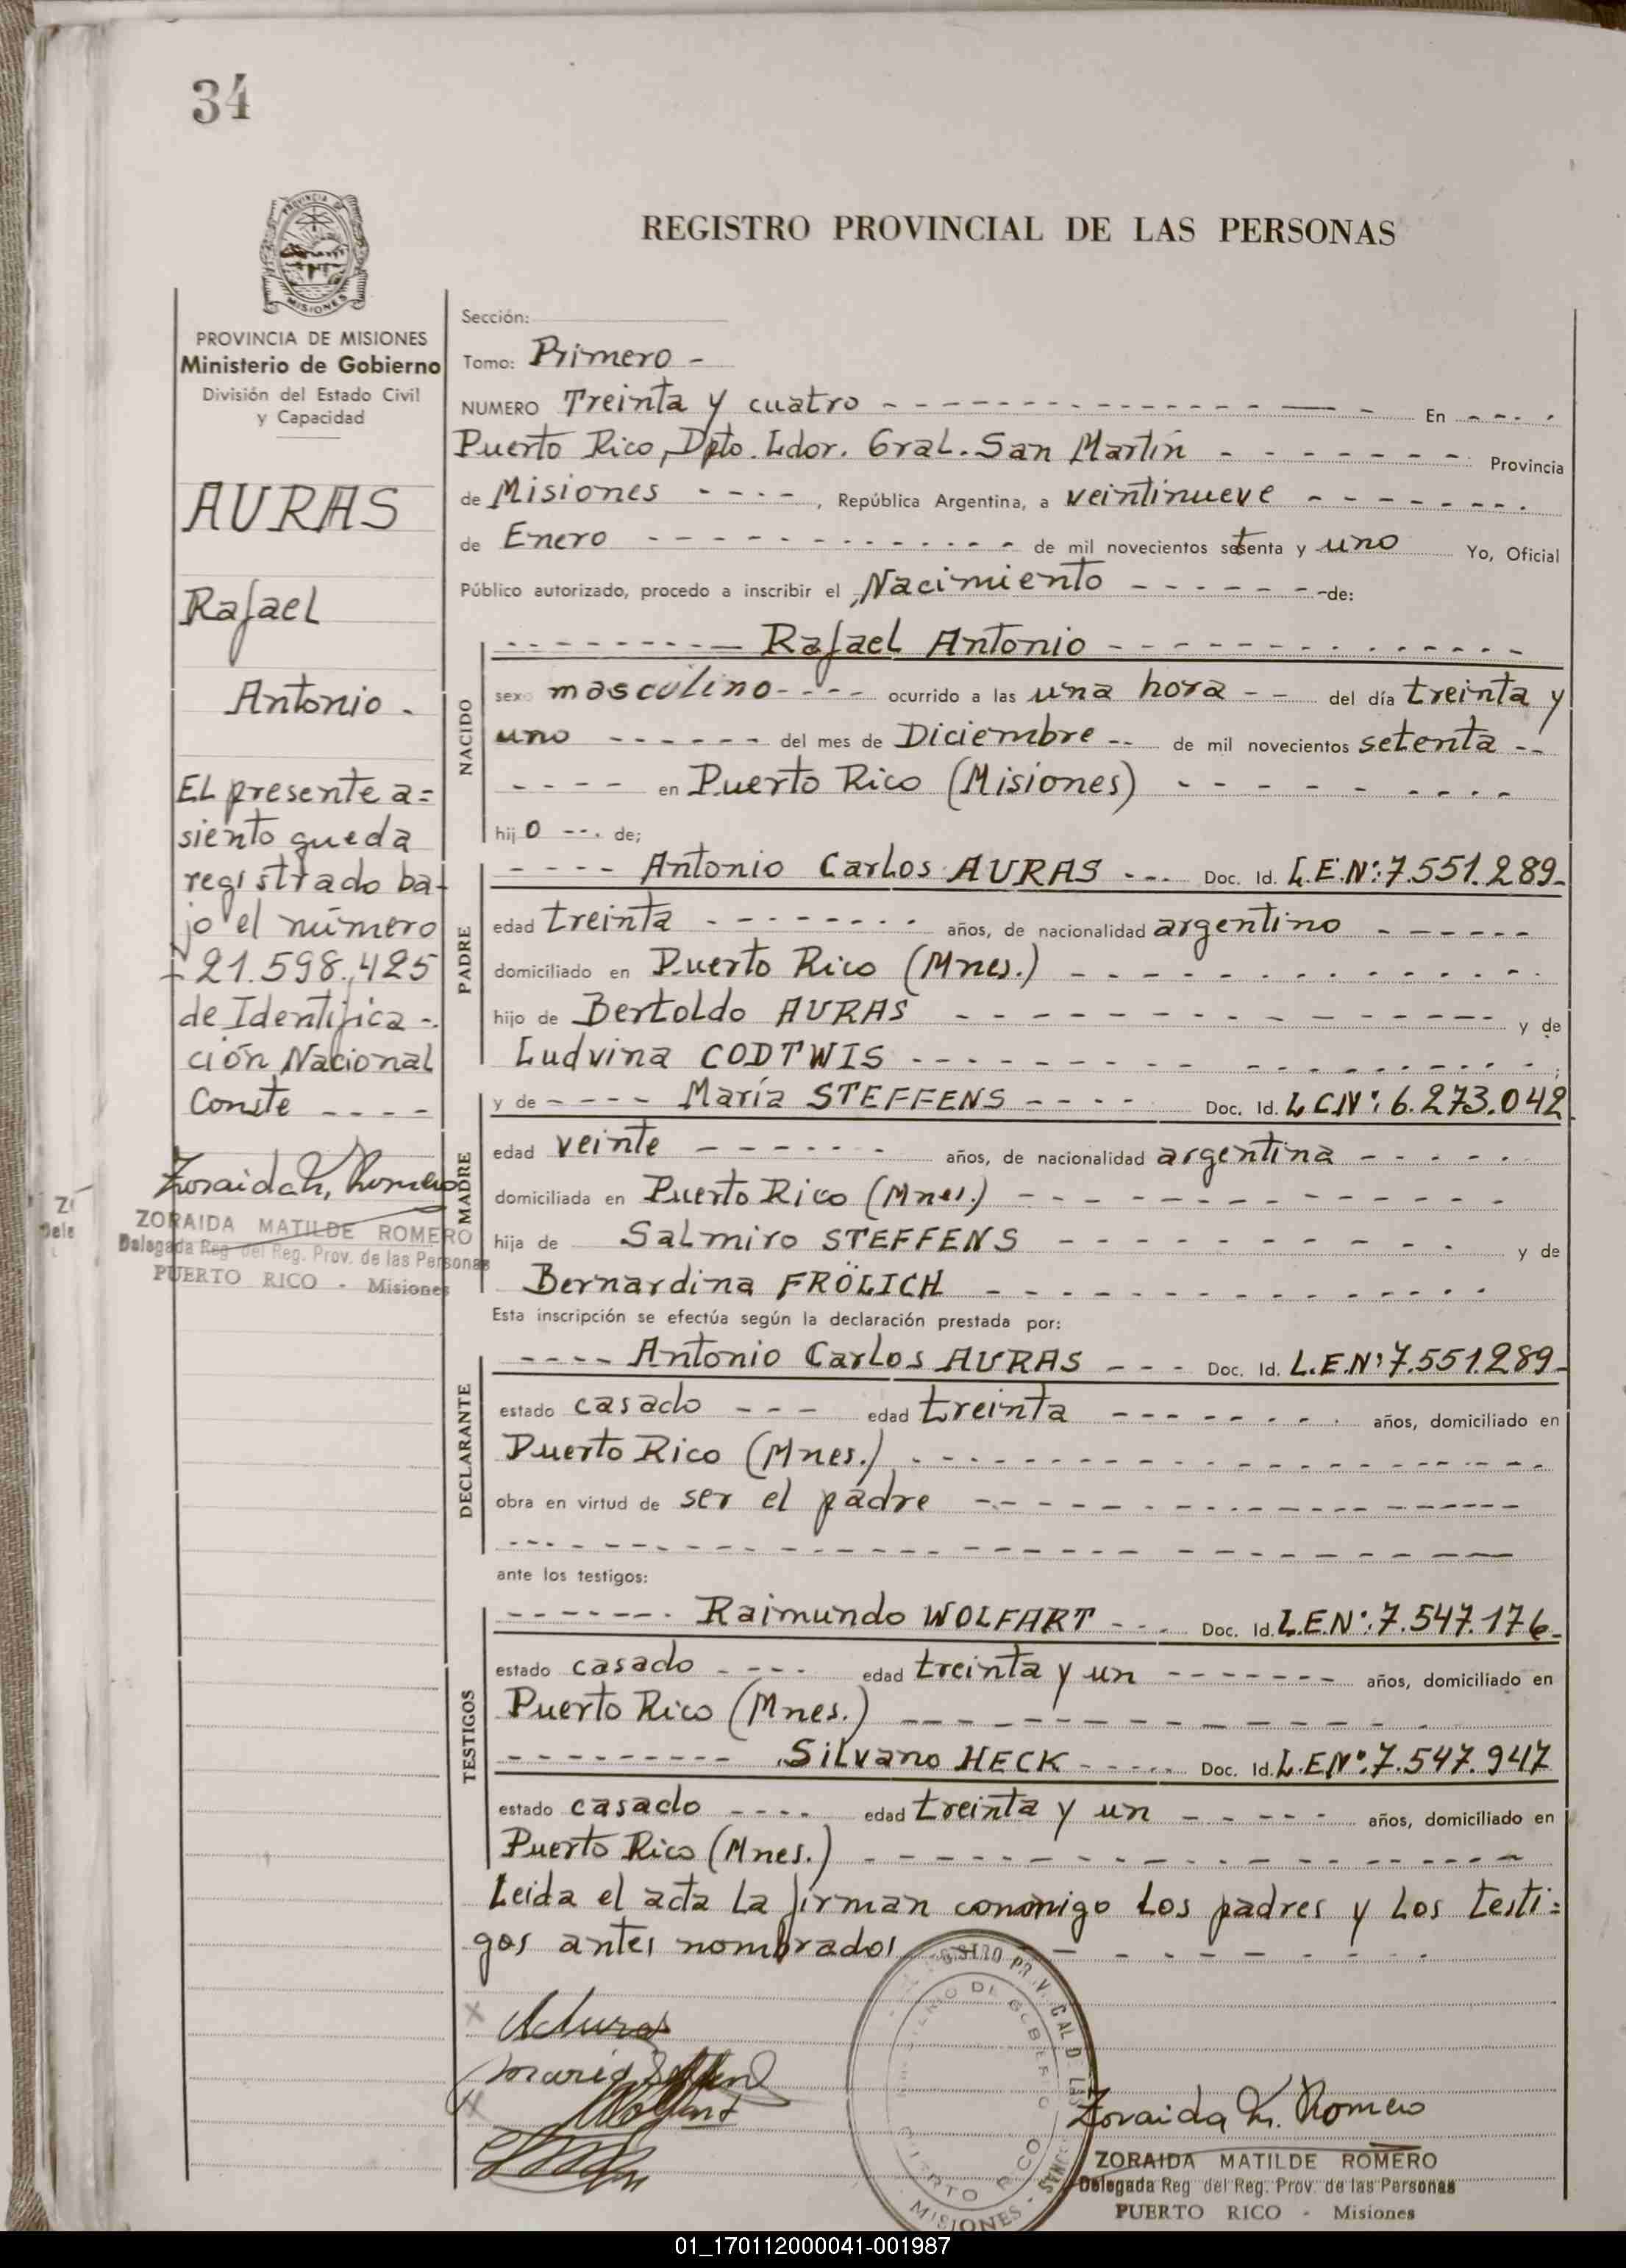 34
PROVINCIA DE
MISIONES
REGISTRO PROVINCIAL DE LAS PERSONAS
PROVINCIA DE MISIONES
Ministerio de Gobierno
División del Estado Civil
y Capacidad
AURAS
Rafael
Antonio -
EL presente a=
siento queda
registrado ba-
jo el número
- 21.598.425
de Identifica-
ción Nacional
Conste - - - -
Zoraida M. Romero
ZORAIDA MATILDE ROMERO
Delegada Reg del Reg. Prov. de las Personas
PUERTO RICO - Misiones
Sección:
Tomo: Primero -
NUMERO Treinta y cuatro - - - En - - -
Puerto Rico, Dpto. Ldor. Gral. San Martín - - - Provincia
de Misiones - - - , República Argentina, a veintinueve - - -
de Enero - - - de mil novecientos setenta y uno Yo, Oficial
Público autorizado, procedo a inscribir el Nacimiento - - - de:
NACIDO
- - - Rafael Antonio - - -
sexo masculino - - - ocurrido a las una hora - - del día treinta y
uno - - - del mes de Diciembre - - de mil novecientos setenta - -
- - - - en Puerto Rico (Misiones) - - -
hijo - - - de;
PADRE
- - - - Antonio Carlos AURAS - - - Doc. Id. L.E.Nº:7.551.289-
edad treinta - - - años, de nacionalidad argentino - - -
domiciliado en Puerto Rico (Mnes.) - - -
hijo de Bertoldo AURAS - - - y de
Ludvina CODTWIS - - - ;
MADRE
y de - - - - María STEFFENS - - - - Doc. Id. L C Nº: 6.273.042
edad veinte - - - años, de nacionalidad argentina - - -
domiciliada en Puerto Rico (Mnes.) - - -
hija de Salmiro STEFFENS - - - y de
Bernardina FRÖLICH - - -
Esta inscripción se efectúa según la declaración prestada por:
DECLARANTE
- - - - Antonio Carlos AURAS - - - Doc. Id. L.E.Nº:7.551.289-
estado casado - - - edad treinta - - - años, domiciliado en
Puerto Rico (Mnes.) - - -
obra en virtud de ser el padre - - -
- - -
ante los testigos:
TESTIGOS
- - - Raimundo WOLFART - - - Doc. Id. L.E.Nº:7.547.176-
estado casado - - - edad treinta y un - - - años, domiciliado en
Puerto Rico (Mnes.) - - -
- - - Silvano HECK - - - Doc. Id. L.E.Nº:7.547.947
estado casado - - - - edad treinta y un - - - años, domiciliado en
Puerto Rico (Mnes.) - - -
Leida el acta La firman conmigo Los padres y Los testi=
gos antes nombrados - - -
Maria Steffens
Zoraida M. Romero
ZORAIDA MATILDE ROMERO
Delegada Reg del Reg. Prov. de las Personas
PUERTO RICO - Misiones
PUERTO RICO
MISIONES
01_170112000041-001987